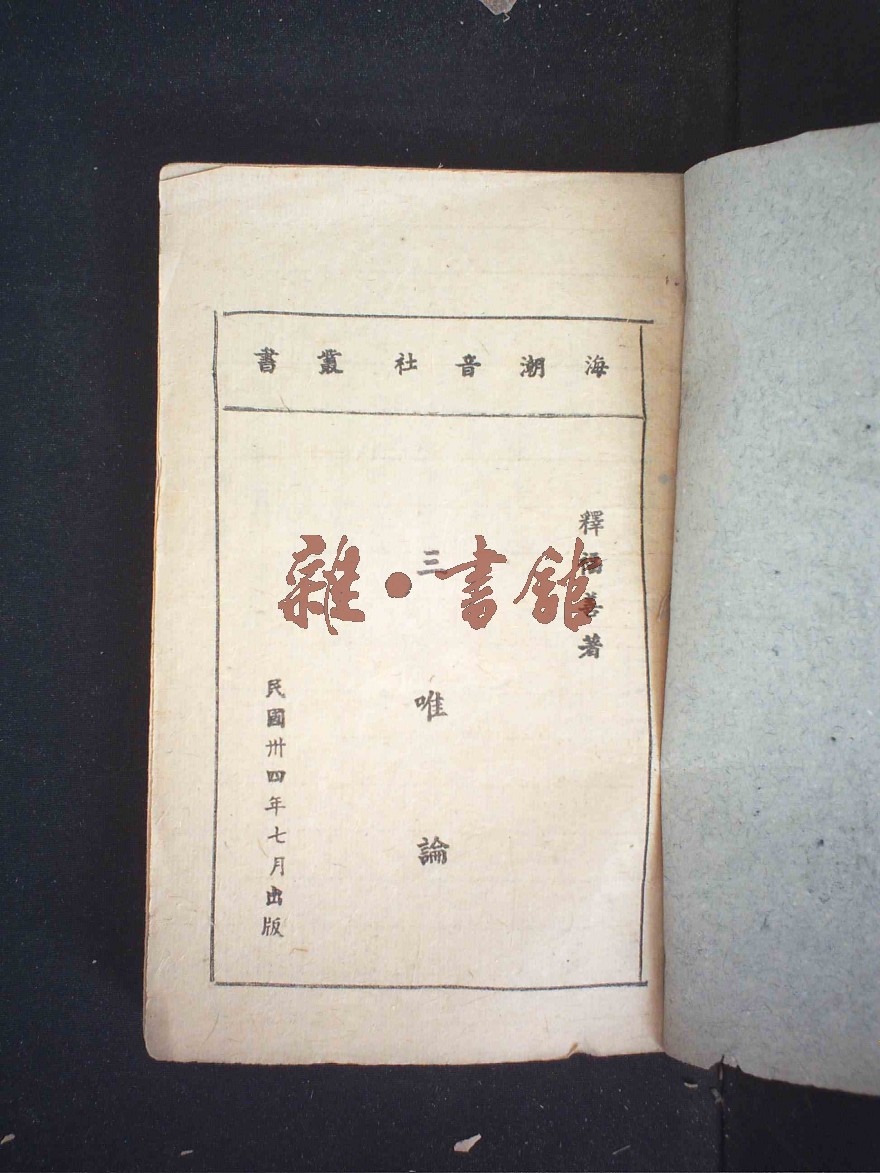 海潮音社叢書
釋福善著
三唯論
民國卅四年七月出版
雜·書館